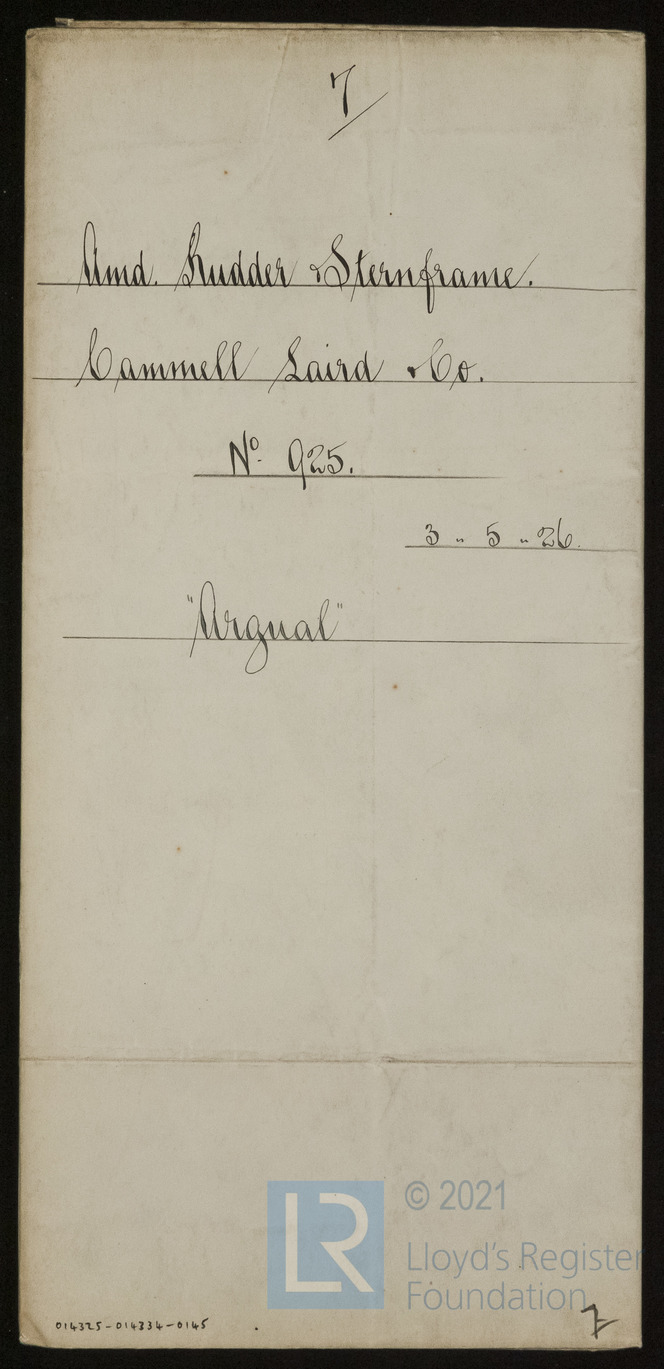 7
Amd. Rudder & Sternframe.
Cammell Laird & Co.
No. 925.
3 " 5 " 26.
"Argual"
LR
© 2021
Lloyd's Register
Foundation
7
014325-014334-0145